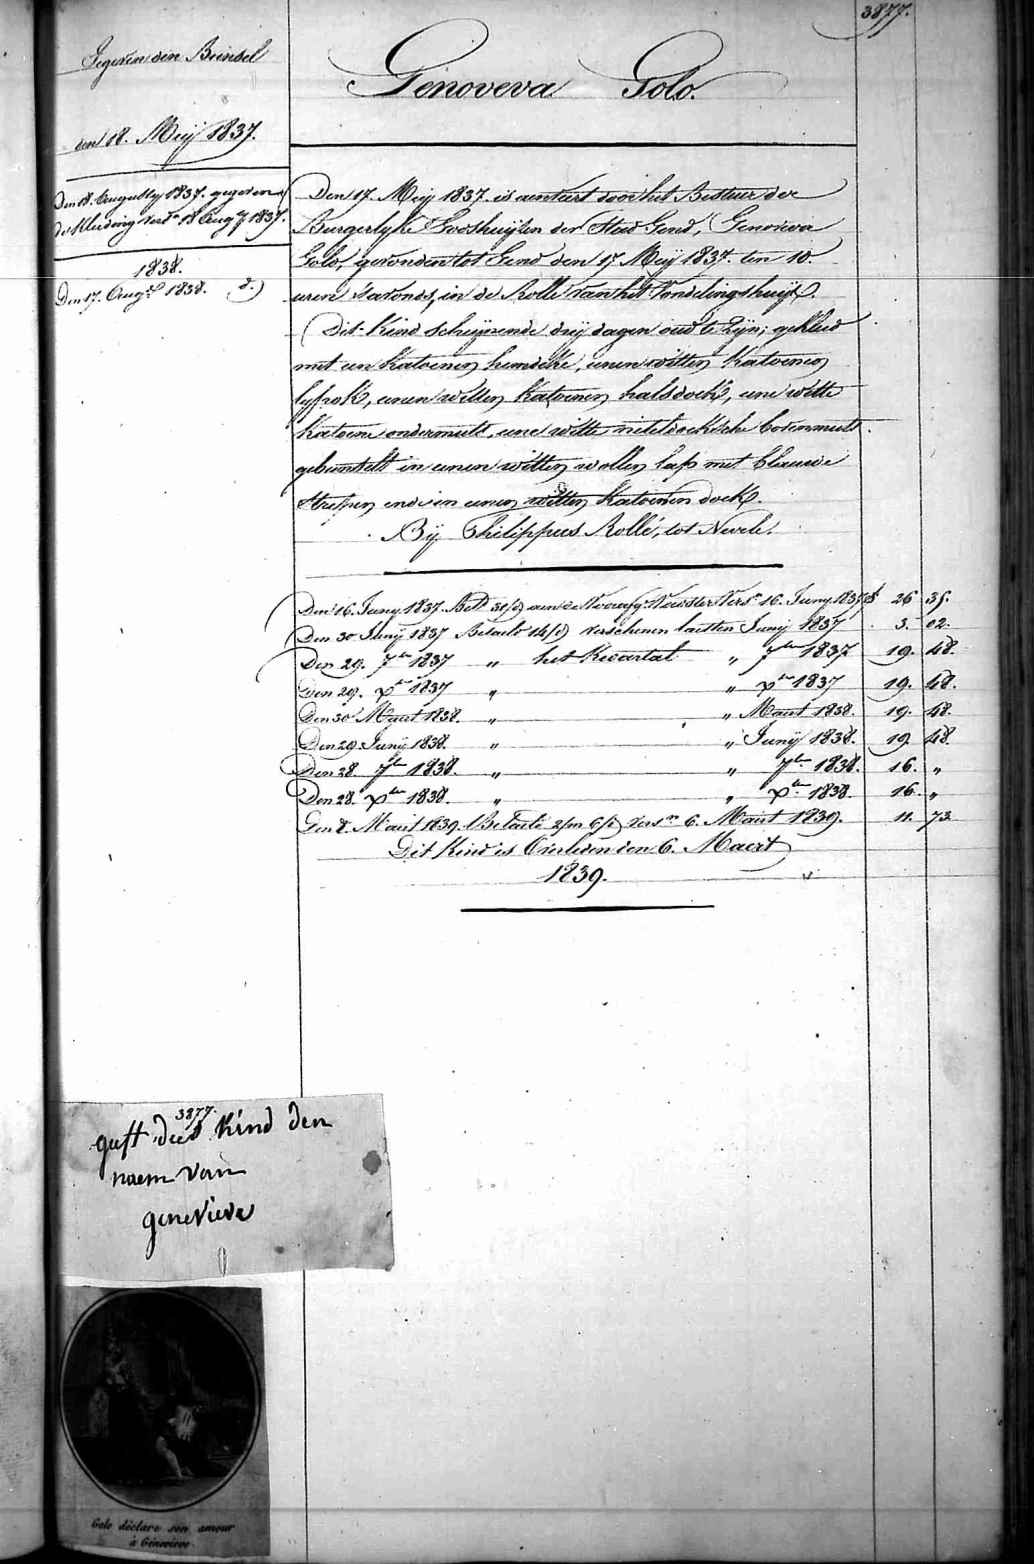 3877.
Gegeven den Bundel
den 18. Meij 1837.
Den 18. Augusty 1837. gegeven
de kleeding verv.n 18 Aug.y 1837.
1838.
Den 17. Aug.st 1838. 2.)
Genoveva Golo.
Den 17. Meij 1837. is aenveert door het Bestuer der
Burgerlyke Godshuijzen der Stad Gend, Genoveva
Golo, gevonden tot Gend den 17 Meij 1837. ten 10.
uren s'avonds, in de Rolle van het Vondelingshuijs.
Dit Kind schijnende drij dagen oud te Zijn; gekleed
met een Katoenen hemdeke, eenen witten Katoenen
lyfrok, eenen witten Katoenen halsdoek, eene witte
Katoene ondermuts, eene witte neteldoeksche bovenmuts
gebusselt in eenen witten wollen lap met blauwe
strepen ende in eenen witten Katoenen doek.
Bij Philippus Rollé, tot Nevele.
Den 16. Juny 1837. Bet. aen de Voorafg. Voedster Verv.n 16. Juny 1837 26 35.
Den 30 Junij 1837 Betaelt 14/d verschenen laetsten Junij 1837 3. 02.
Den 29. 7ber 1837 „ het Kwartal „ 7ber 1837 19. 48.
Den 29. Xber 1837 „ „ Xber 1837 19. 48.
Den 30 Maert 1838. „ „ Maert 1838. 19. 48.
Den 29 Junij 1838. „ „ Junij 1838. 19. 48.
Den 28. 7ber 1838. „ „ 7ber 1838. 16. „
Den 28. Xber 1838. „ „ Xber 1838. 16. „
Den 8. Maert 1839. Betaelt 2/m 6/d verv.n 6. Maert 1839. 11. 73.
Dit Kind is Overleden den 6. Maert
1839.
3877.
geeft dees kind den
naem van
genevieve
Golo déclare son amour
à Geneviève.